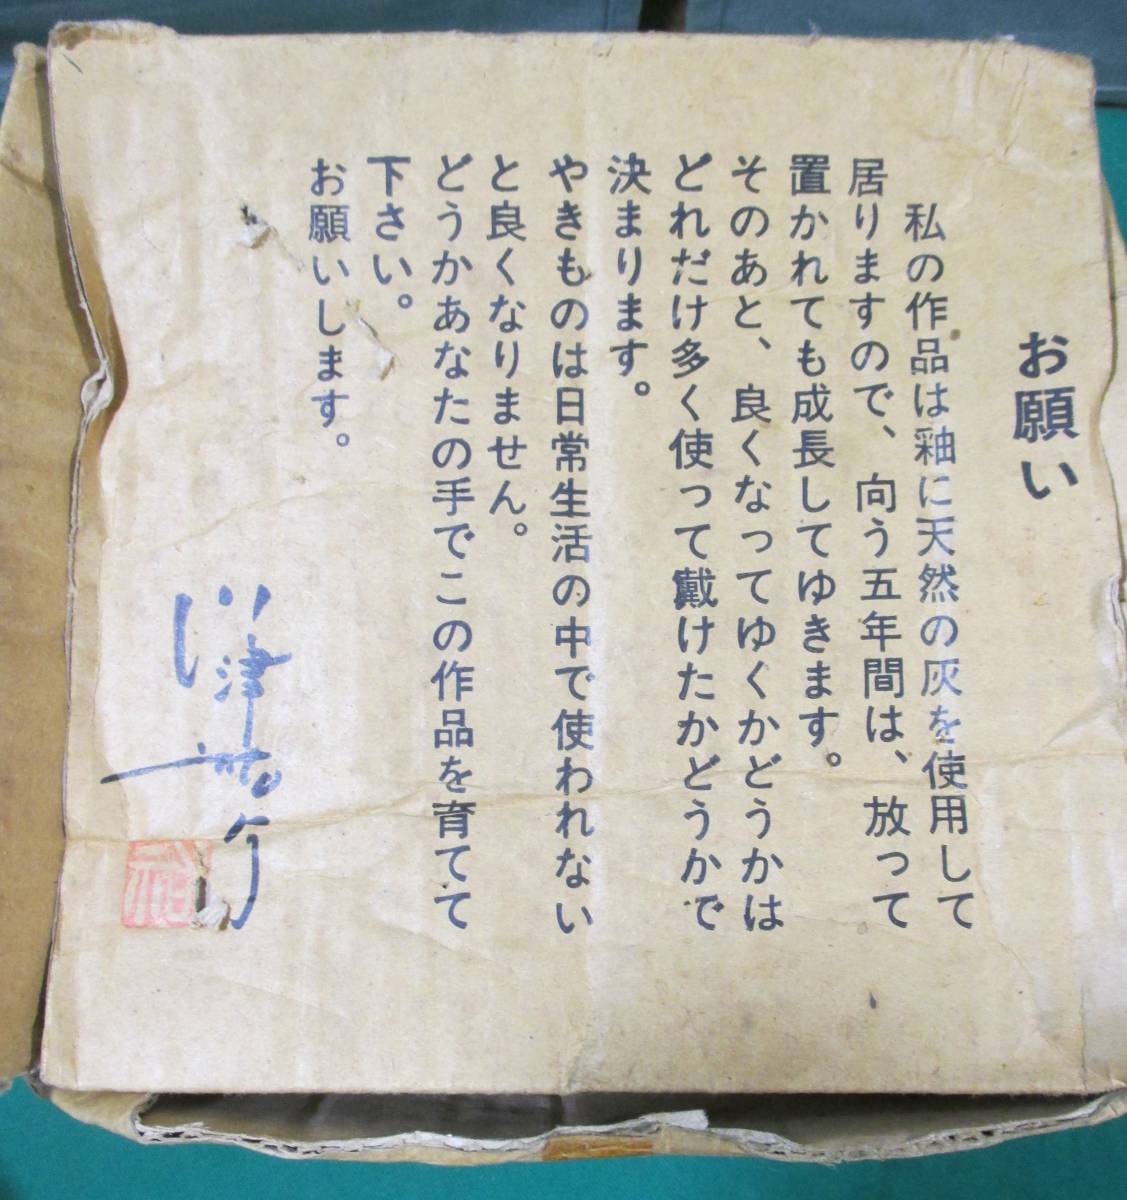 お願い
私の作品は釉に天然の灰を使用して
居りますので、向う五年間は、放って
置かれても成長してゆきます。
そのあと、良くなってゆくかどうかは
どれだけ多く使って戴けたかどうかで
決まります。
やきものは日常生活の中で使われない
と良くなりません。
どうかあなたの手でこの作品を育てて
下さい。
お願いします。